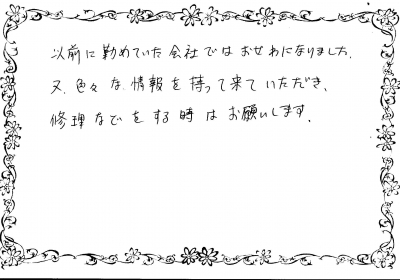 以前に勤めていた会社ではおせわになりました。
又、色々な情報を持って来ていただき、
修理などをする時はお願いします。